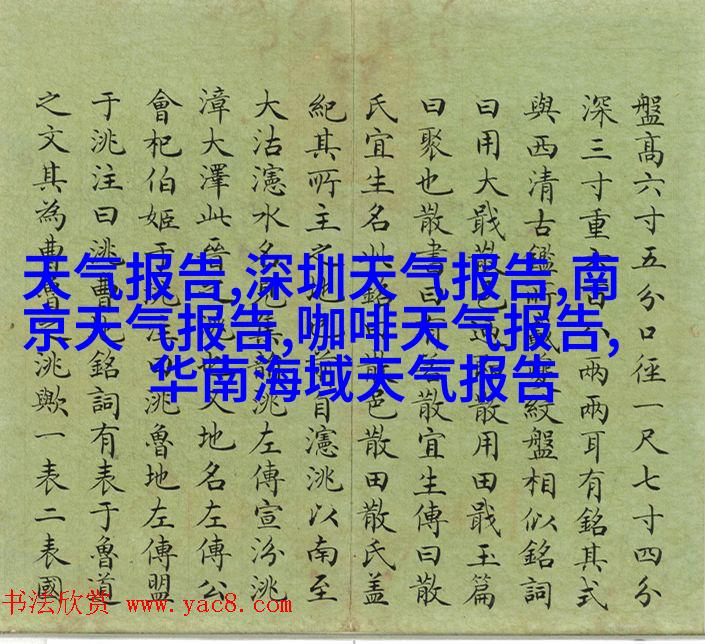 盤高六寸五分口徑一尺七寸四分
深三寸重兩兩耳有銘其式
與西清古鑑所紋盤相似銘詞
曰用大戢散用田戢玉篇
曰聚也散書曰散宜生傳曰散
氏宜生名此銘散邑散田散氏蓋
紀其所主之地自瀗洮以南至
大沽瀗水名見集韻洮左傳宣汾洮
漳大澤此晉之洮也又地名左傳公
會杞伯姬于洮注曰洮魯地左傳盟
于洮注曰洮曹地銘詞有表于魯道
之文其為曹魯之洮歟一表二表國
天气报告,深圳天气报告,南
京天气报告,咖啡天气报告,
华南海域天气报告
书法欣赏 www.yac8.com